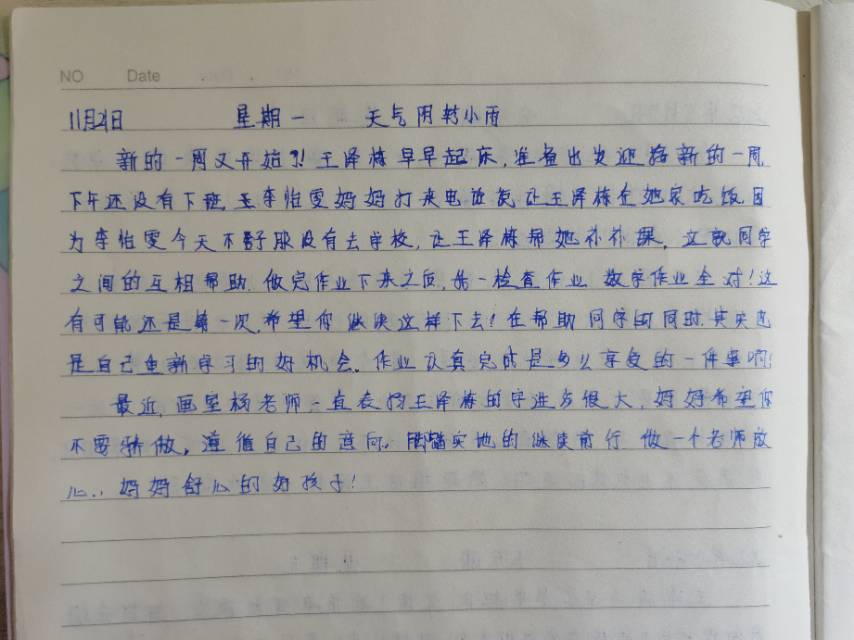 NO Date
11月21日 星期一 天气阴转小雨
新的一周又开始了!王泽栋早早起床,准备出发迎接新的一周,
下午还没有下班,李怡雯妈妈打来电话说让王泽栋在她家吃饭,因
为李怡雯今天不舒服没有去学校,让王泽栋帮她补补课,这就同学
之间的互相帮助.做完作业下来之后,我一检查作业 数学作业全对!这
有可能还是第一次,希望你继续这样下去!在帮助同学的同时,其实也
是自己重新学习的好机会.作业认真完成是多么享受的一件事啊!
最近,画室杨老师一直表扬王泽栋的字进步很大,妈妈希望你
不要骄傲,遵循自己的意向,脚踏实地的继续前行 做一个老师放
心,妈妈舒心的好孩子!